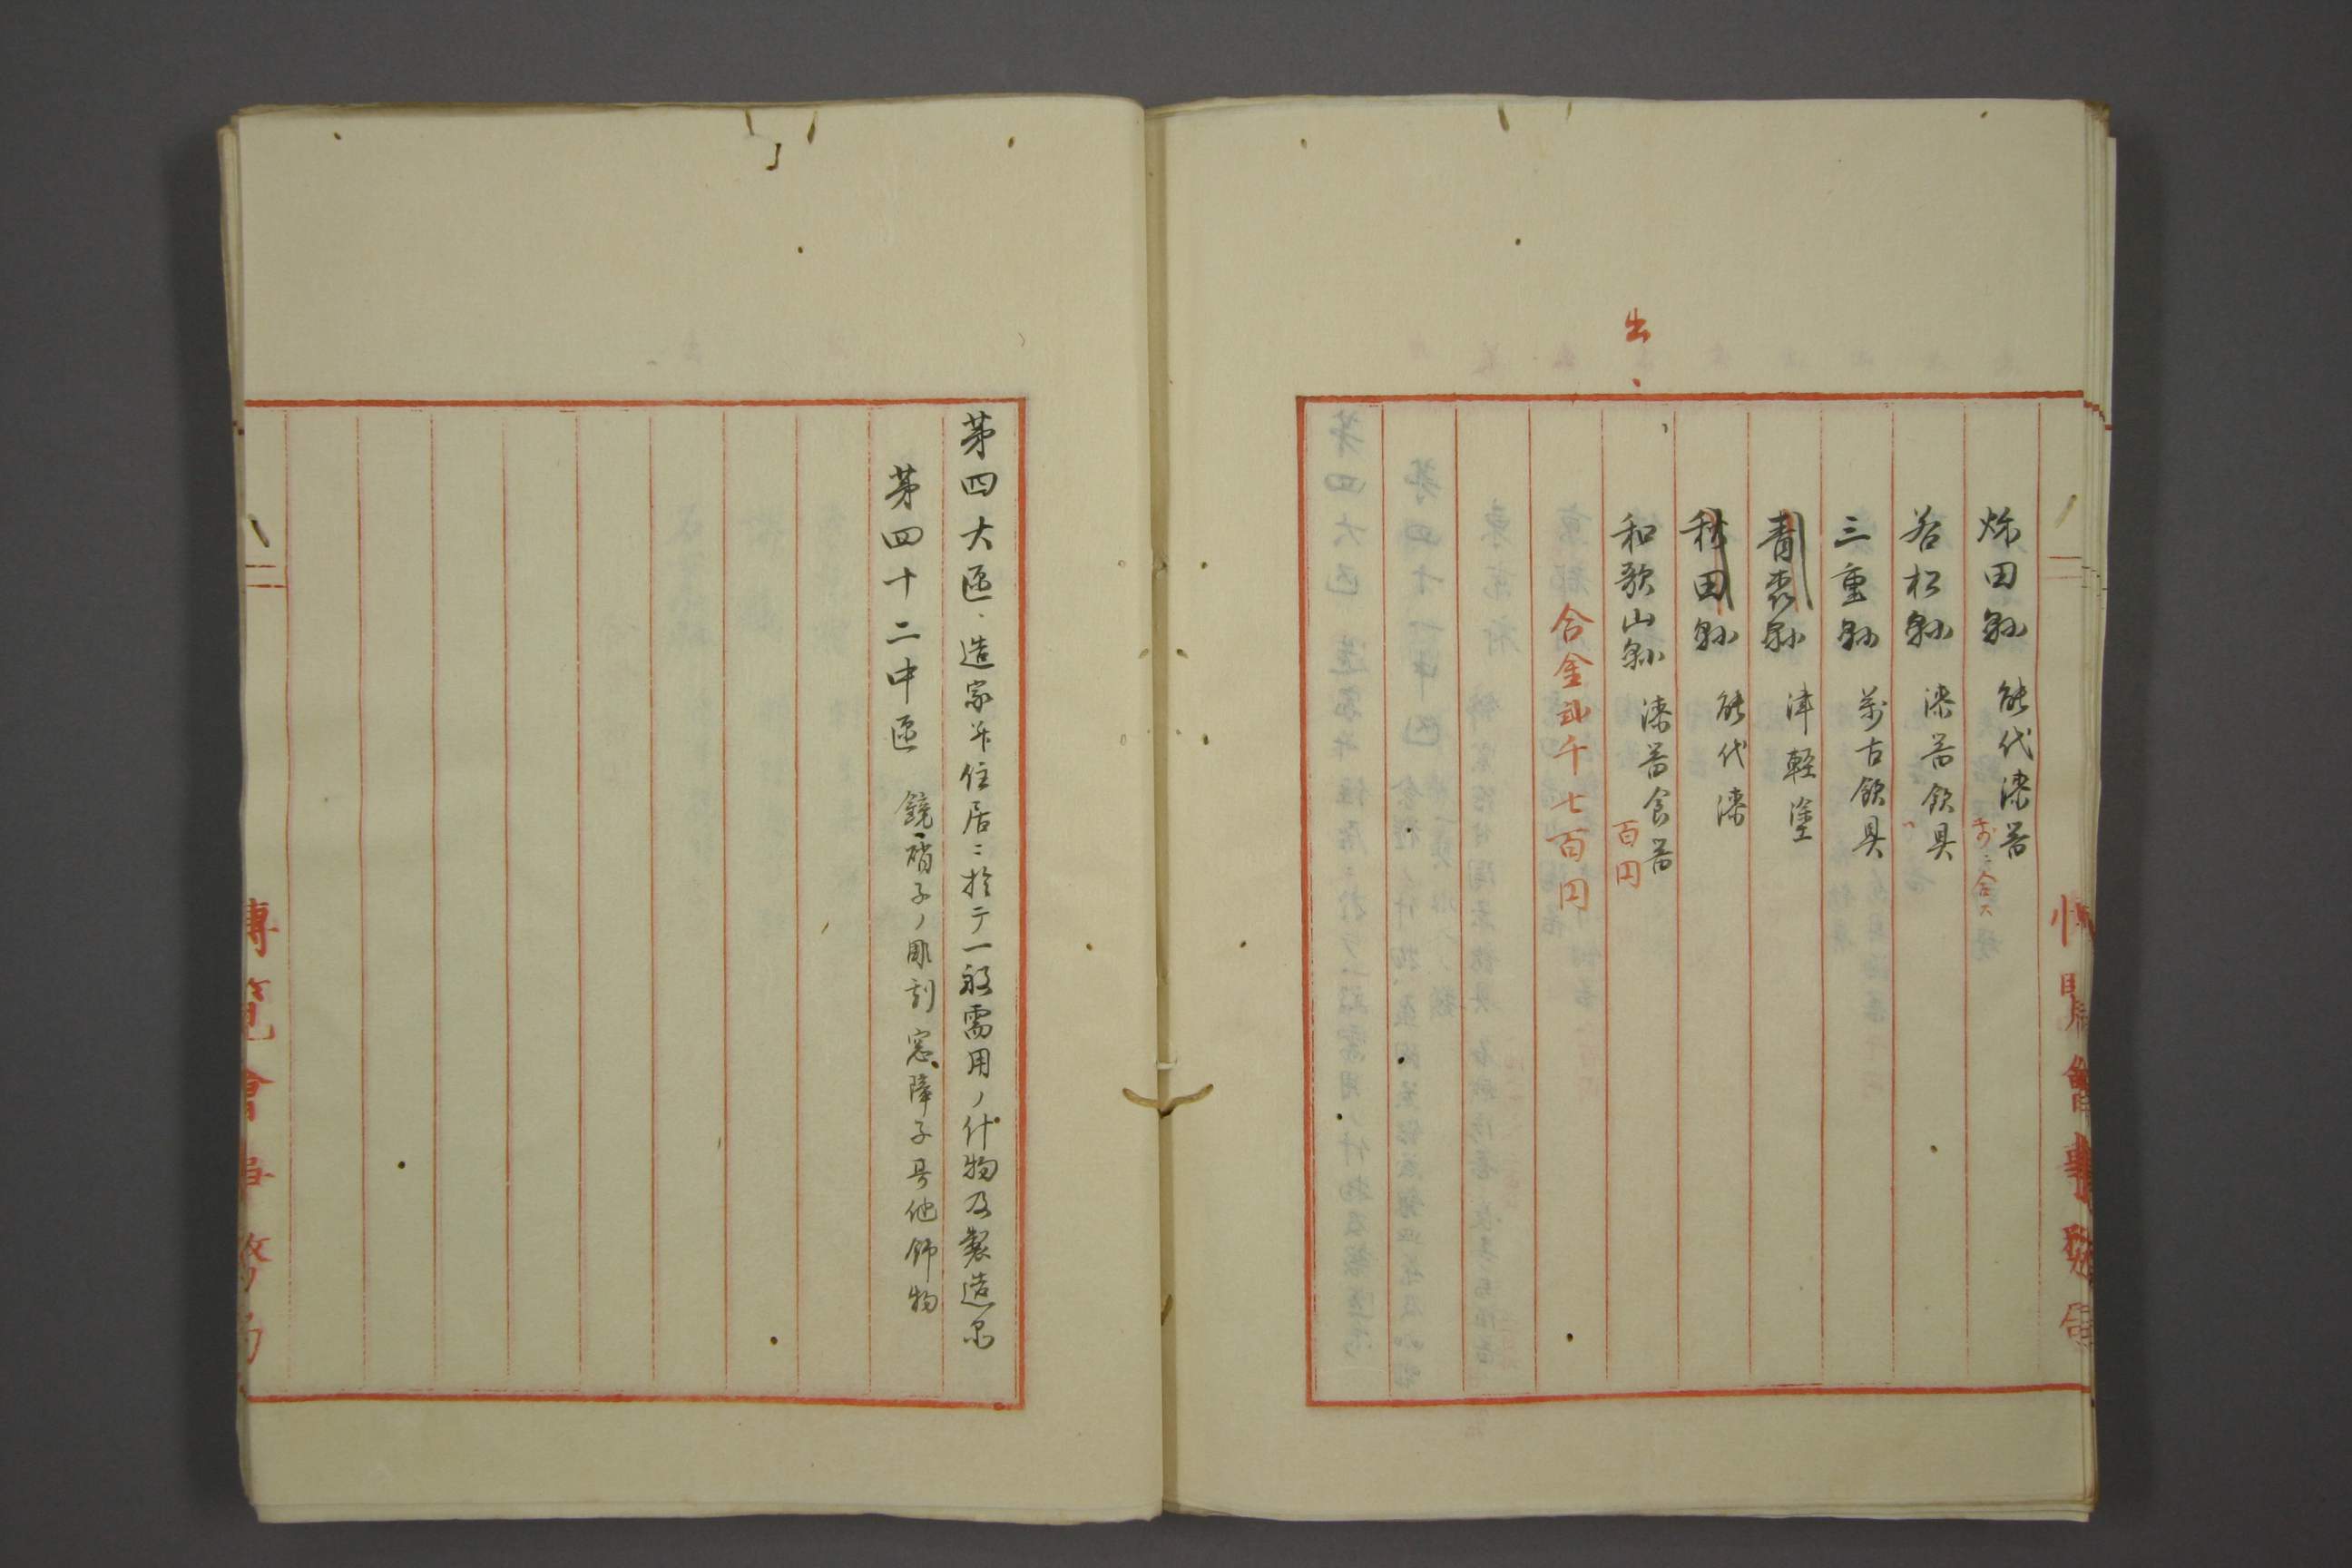 秋田縣 能代漆器
若松縣 漆器飲具
三重縣 萬古飲具
青森縣 津軽塗
秋田縣 能代漆
出
和歌山縣 漆器食器
百円
合金弐千七百円
第四大區、造家并住居ニ於テ一般需用ノ什物及製造品
第四十二中區 鏡、硝子ノ彫刻窓、障子其他飾物
博覧會事務局